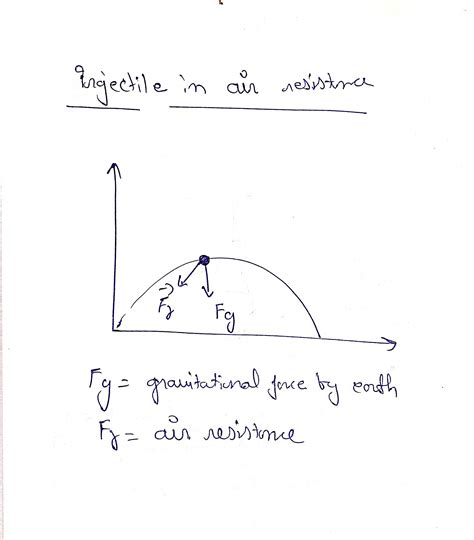 Projectile in air resistnce
Fr
Fg
Fg = gravitational force by earth
Fr = air resistance